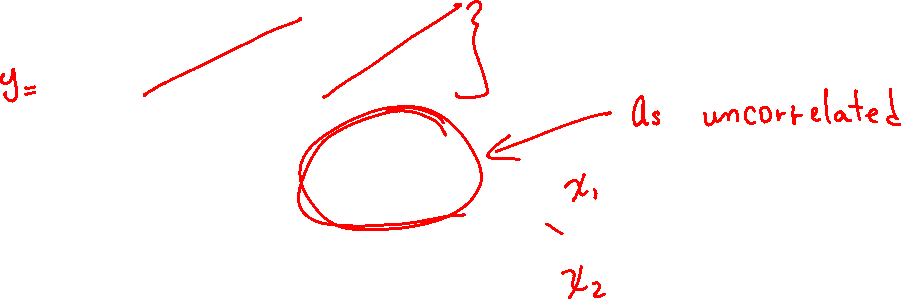 y=
as uncorrelated
x₁
x₂